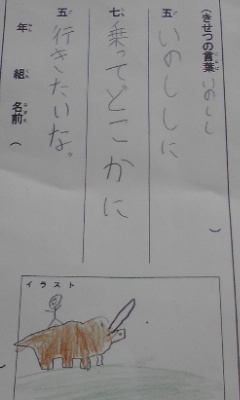 （きせつの言葉 いのしし ）
五 いのししに
七 乗ってどこかに
五 行きたいな。
年 組 名前（
イラスト